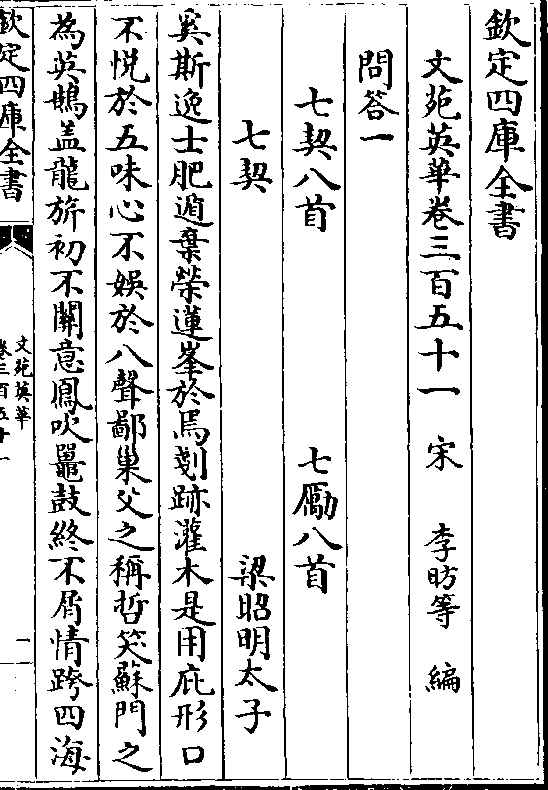 欽定四庫全書
文苑英華卷三百五十一　宋　李昉等　編
問答一
七契八首　七勵八首
七契　梁昭明太子
奚斯逸士肥遁棄榮蓮峯於焉剗跡灌木是用庇形口
不悦於五味心不娯於八聲鄙巢父之稱哲笑蘇門之
為英鵾盖龍旂初不關意鳳吹鼉鼓終不屑情跨四海
欽定四庫全書
文苑英華
卷三百五十一
一